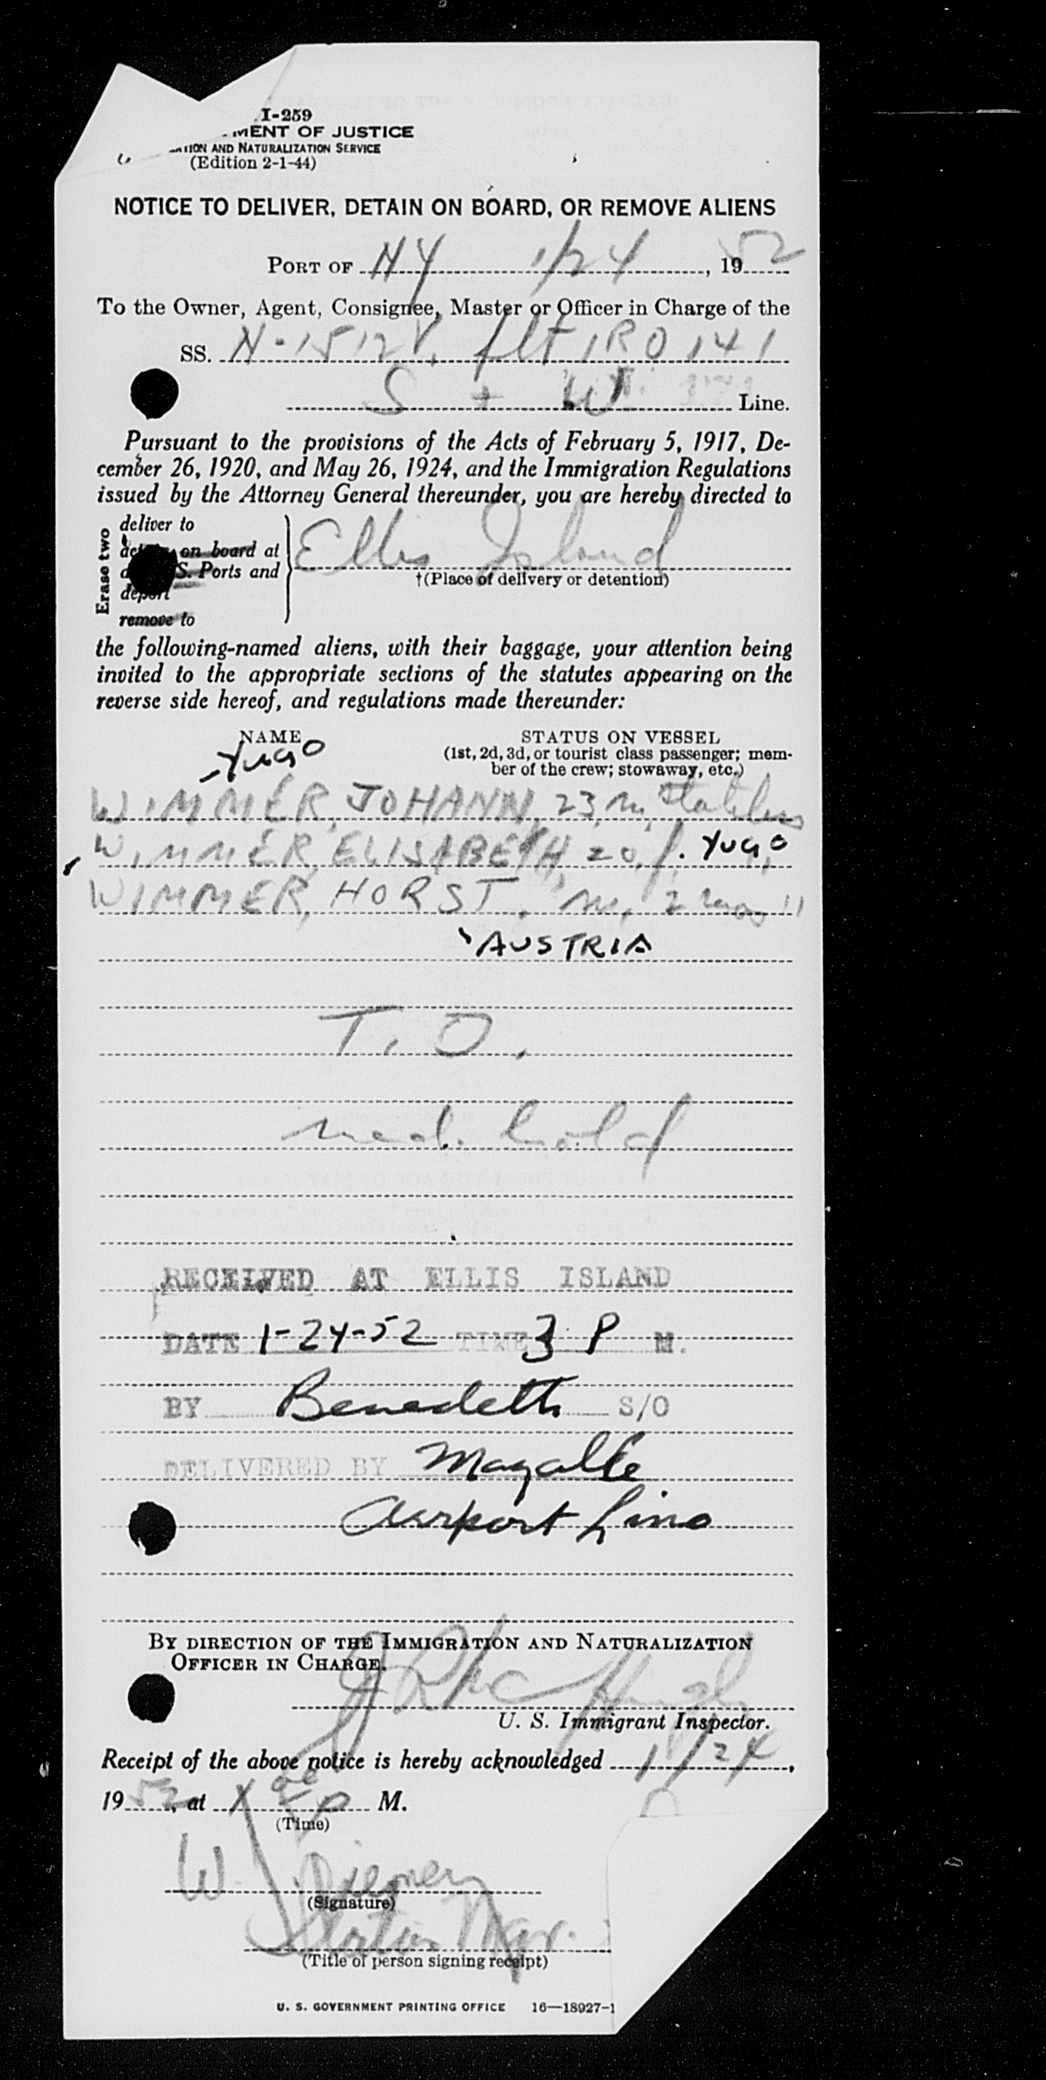 I-259
MENT OF JUSTICE
TION AND NATURALIZATION SERVICE
(Edition 2-1-44)
NOTICE TO DELIVER, DETAIN ON BOARD, OR REMOVE ALIENS
PORT OF NY 1/24, 1952
To the Owner, Agent, Consignee, Master or Officer in Charge of the
SS. N-1512V. flt IRO 141
S + W Line.
Pursuant to the provisions of the Acts of February 5, 1917, De-
cember 26, 1920, and May 26, 1924, and the Immigration Regulations
issued by the Attorney General thereunder, you are hereby directed to
Erase two
deliver to
on board at
S. Ports and
deport
remove to
Ellis Island
†(Place of delivery or detention)
the following-named aliens, with their baggage, your attention being
invited to the appropriate sections of the statutes appearing on the
reverse side hereof, and regulations made thereunder:
NAME
STATUS ON VESSEL
(1st, 2d, 3d, or tourist class passenger; mem-
ber of the crew; stowaway, etc.)
-YUGO
WIMMER, JOHANN, 23, m, Stateless
WIMMER, ELISABETH, 20, f. YUGO
WIMMER, HORST, m, 2 mos "
AUSTRIA
T. O.
med. hold
RECEIVED AT ELLIS ISLAND
DATE 1-24-52 TIME 3 P M.
BY Benedetti S/O
DELIVERED BY
Airport Limo
BY DIRECTION OF THE IMMIGRATION AND NATURALIZATION
OFFICER IN CHARGE.
J McHugh
U. S. Immigrant Inspector.
Receipt of the above notice is hereby acknowledged 1/24,
1952, at P M.
(Time)
W
(Signature)
Station Mgr.
(Title of person signing receipt)
U. S. GOVERNMENT PRINTING OFFICE 16—18927-1